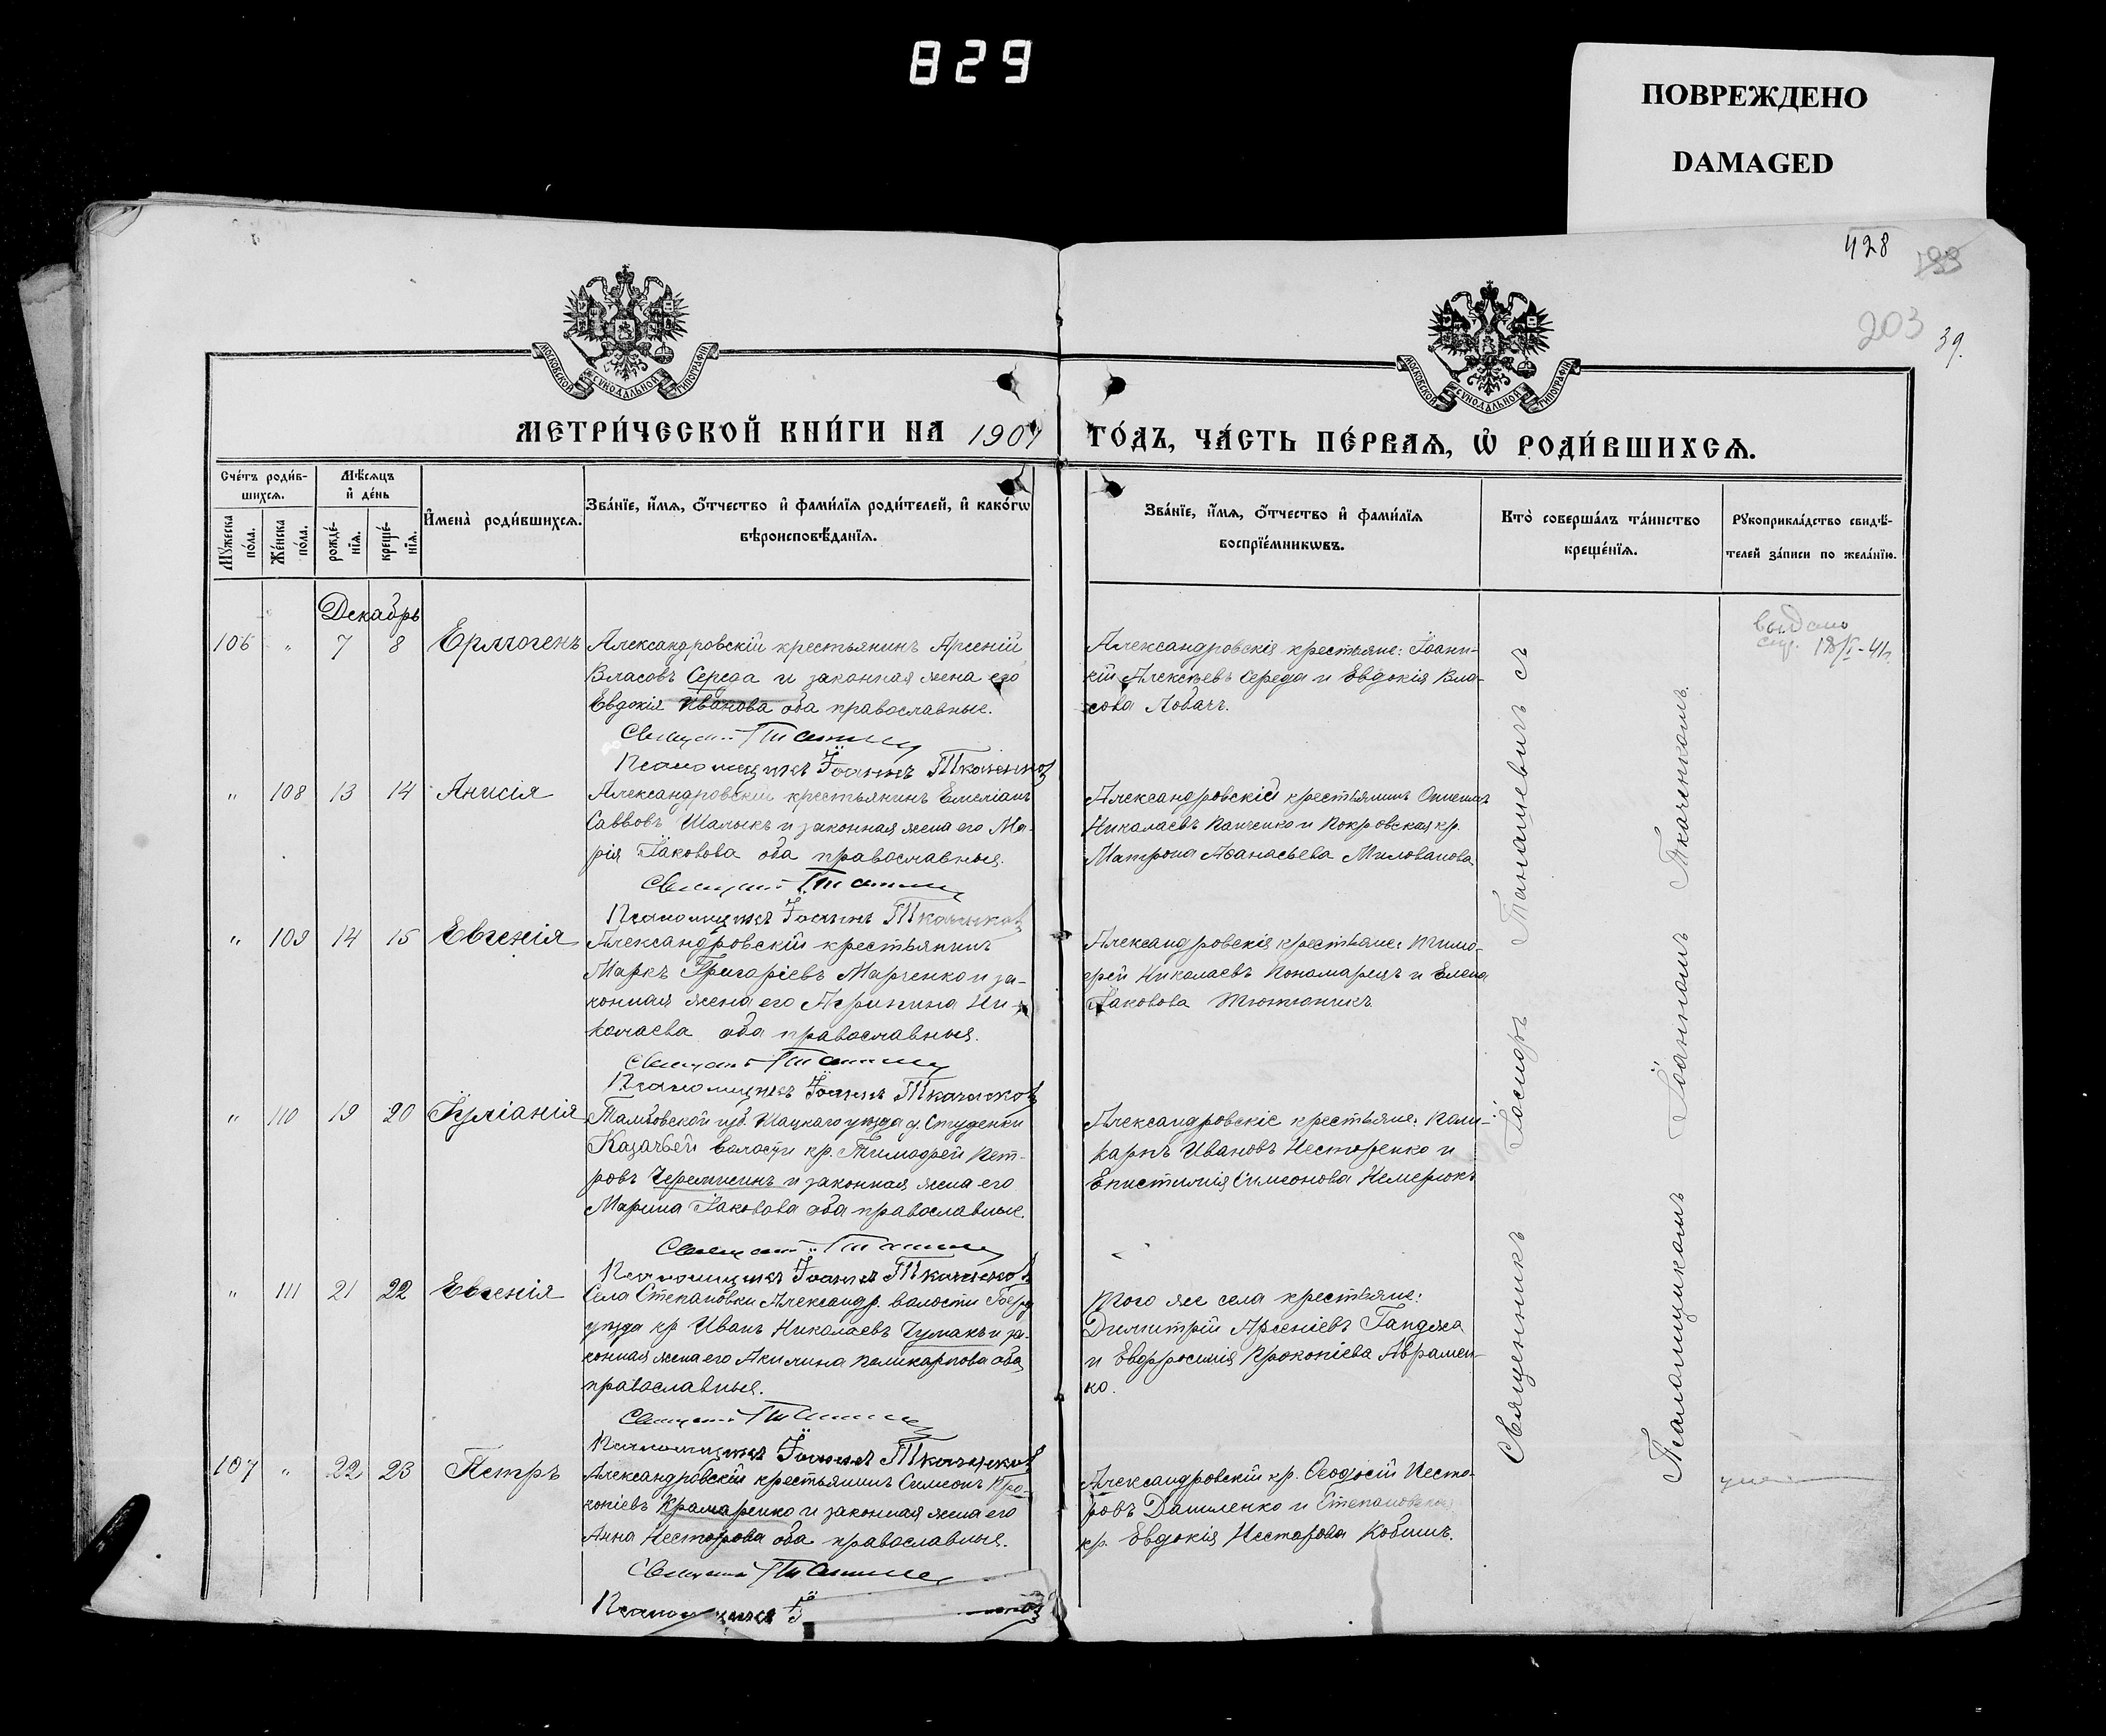 829
ПОВРЕЖДЕНО
DAMAGED
428
203
39.
МОСКОВСКОЙ СѴНОДАЛЬНОЙ ТИПОГРАФІИ
МОСКОВСКОЙ СѴНОДАЛЬНОЙ ТИПОГРАФІИ
МЕТРИ́ЧЕСКОЙ КНИ́ГИ НА 1907 ГО́ДЪ, ЧА́СТЬ ПЕ́РВАѦ, Ѡ҆ РОДИ́ВШИХСѦ.
Сче́тъ роди́в-
шихсѧ.
Мꙋ́жеска по́ла.
Же́нска по́ла.
Мѣ́сѧцъ
и҆ де́нь
рожде́-
нїѧ.
креще́-
нїѧ.
И҆мена̀ роди́вшихсѧ.
Зва́нїе, и҆́мѧ, ѻ҆́тчество и҆ фами́лїѧ роди́телей, и҆ како́гѡ
вѣроисповѣ́данїѧ.
Зва́нїе, и҆́мѧ, ѻ҆́тчество и҆ фами́лїѧ
воспрїе́мникѡвъ.
Кто̀ соверша́лъ та́инство
креще́нїѧ.
Рꙋкоприкла́дство свидѣ́-
телей за́писи по жела́нїю.
Декабрь
106 " 7 8 Ермогенъ
Александровскій крестьянинъ Арсеній
Власовъ Середа и законная жена его
Евдокія Иванова оба православные.
Псаломщикъ Іоаннъ Ткаченковъ
Александровскія крестьяне: Іоанни-
кій Алексѣевъ Середа и Евдокія Вла-
сова Лобачъ.
выдано
" 108 13 14 Анисія
Александровскій крестьянинъ Емеліанъ
Саввовъ Шалыкъ и законная жена его Ма-
рія Іаковова оба православныя.
Псаломщикъ Іоаннъ Ткаченковъ
Александровскій крестьянинъ
Николаевъ Панченко и Покровская кр.
Матрона Аѳанасьева Милованова
" 109 14 15 Евгенія
Александровскій крестьянинъ
Маркъ Григоріевъ Марченко и за-
конная жена его Агрипина Ни-
колаева оба православныя.
Псаломщикъ Іоаннъ Ткаченковъ
Александровскія крестьяне: Тимо-
фей Николаевъ Пономарецъ и Елена
Іаковова Тютюнникъ
" 110 19 20 Іуліанія
Тамбовской губ. Шацкаго уѣзда д. Студенки
Казачьей волости кр. Тимофей Пет-
ровъ Черемисинъ и законная жена его
Марина Іаковова оба православные
Псаломщикъ Іоаннъ Ткаченковъ
Александровскіе крестьяне: Поли-
карпъ Ивановъ Нестеренко и
Епистимія Симеонова Немерюкъ
" 111 21 22 Евгенія
Села Степановки Александр. волости
уѣзда кр Иванъ Николаевъ Чумакъ и за-
конная жена его Акилина Поликарпова оба
православныя.
Псаломщикъ Іоаннъ Ткаченковъ
Того же села крестьяне:
Димитрій Арсеніевъ Ганджа
и Евфросинія Прокопіева Авраmен-
ко.
107 " 22 23 Петръ
Александровскій крестьянинъ Симеонъ Про-
копіевъ Крамаренко и законная жена его
Анна Несторова оба православныя.
Псаломщикъ
Александровскій кр. Ѳеодосій Несто-
ровъ Даниленко и Степановская
кр. Евдокія Несторова Кобшнъ.
Священникъ Іосифъ Танашевичъ съ
Псаломщикомъ Іоанномъ Ткаченкомъ.